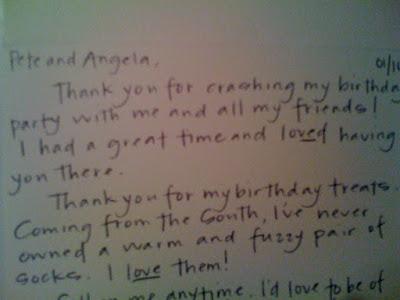 Pete and Angela, 01/1
Thank you for crashing my birthday
party with me and all my friends!
I had a great time and loved having
you there.
Thank you for my birthday treats.
Coming from the South, I've never
owned a warm and fuzzy pair of
socks. I love them!
me anytime. I'd love to be of